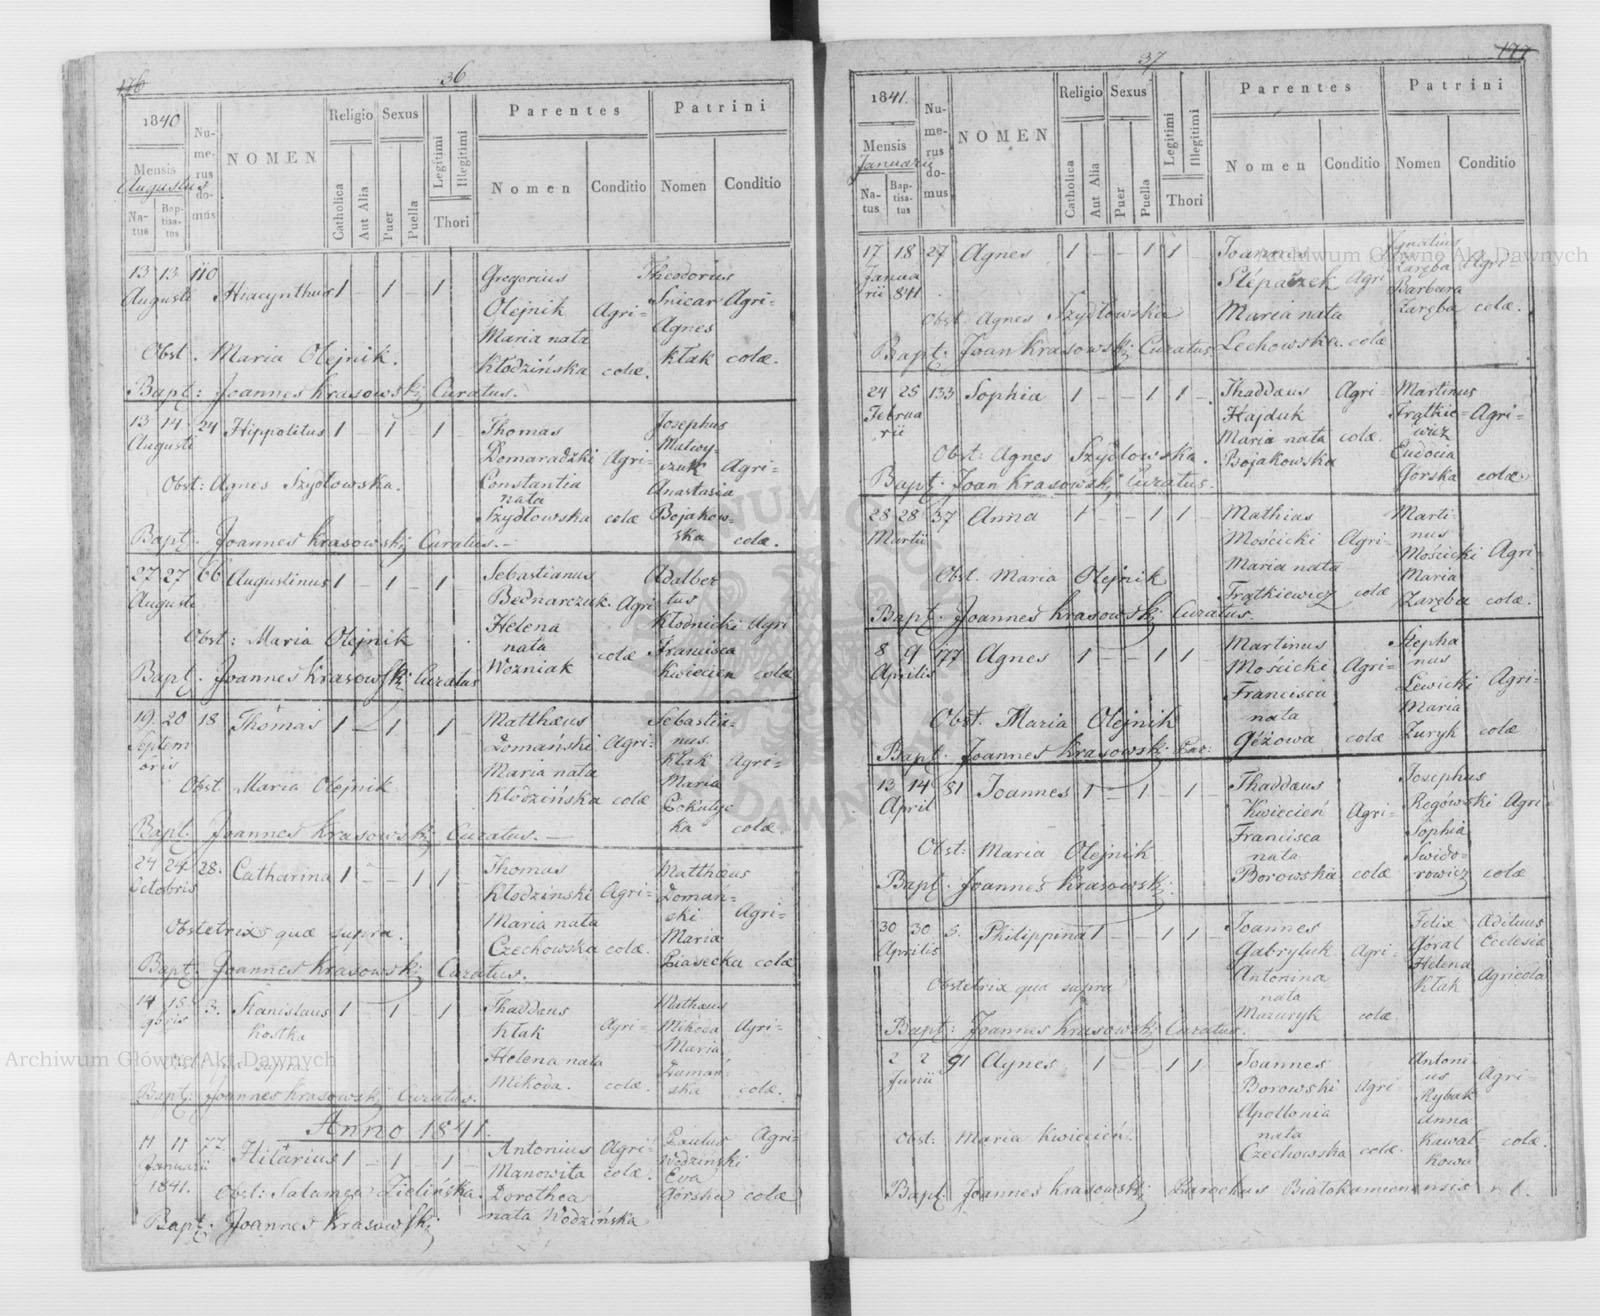 176
36
1840
Nu-
me-
rus
do-
mus
NOMEN
Religio
Sexus
Legitimi
Illegitimi
Parentes
Patrini
Mensis
Augustus
Na-
tus
Bap-
tisa-
tus
Catholica
Aut Alia
Puer
Puella
Thori
Nomen
Conditio
Nomen
Conditio
13 13 110 Hiacynthus 1 - 1 - 1 Gregorius Theodorius
Augusti Olejnik Agri- Snicar Agri-
Maria nata Agnes
Obst. Maria Olejnik. Kłodzińska colæ. Kłak colæ.
Bapt: Joannes Krasowski Curatus.
13 14 24 Hippolitus 1 - 1 - 1 Thomas Josephus
Augusti Domaradzki Agri- Matwy-
czuk Agri-
Obst: Agnes Szydłowska. Constantia Anastasia
nata
Szydłowska colæ Bojakow-
ska colæ.
Bapt. Joannes Krasowski Curatus.-
27 27 66 Augustinus 1 - 1 - 1 Sebastianus Adalber
Augusti Bednarczuk Agri tus
Helena Kłodnicki Agri
Obst: Maria Olejnik nata colæ Francisca
Bapt. Joannes Krasowski Curatus Wozniak Kwiecien colæ
19 20 18 Thomas 1 - 1 - 1 Matthæus Sebastia-
Septem Domański Agri- nus
bris Maria nata Kłak Agri-
Obst Maria Olejnik Kłodzińska colæ Maria
Bapt. Joannes Krasowski Curatus.- ka colæ
24 24 28. Catharina 1 - - 1 1 - Thomas Matthæus
Octobris Kłodzinski Agri- Domań-
ski Agri-
Obstetrix quæ supra. Maria nata Maria
Czechowska colæ. Piasecka colæ
Bapt. Joannes Krasowski Curatus.
14 15 3. Stanislaus 1 - 1 - 1 Thaddæus Mathæus
9bris Kostka Kłak Agri- Mikoda Agri-
Helena nata Maria
Obst. quæ supra. Mikoda. colæ. Doman-
ska colæ.
Bapt: Joannes Krasowski Curatus.
Anno 1841.
11 11 77. Hilarius 1 - 1 - 1 - Antonius Agri Paulus Agri-
Januarii Manowita colæ. Wodzinski
1841. Obst: Salamea Zielińska. Dorothea Eva
Górska colæ
Bapt. Joannes Krasowski nata Wodzińska
37
177
1841.
Nu-
me-
rus
do-
mus
NOMEN
Religio
Sexus
Legitimi
Illegitimi
Parentes
Patrini
Mensis
Januarii
Na-
tus
Bap-
tisa-
tus
Catholica
Aut Alia
Puer
Puella
Thori
Nomen
Conditio
Nomen
Conditio
17 18 27 Agnes 1 - - 1 1 - Joannes Ignatius
Janua Slépaczek Agri Zaręba Agri
rii 841 Barbara
Obst. Agnes Szydłowska Maria nata Zaręba colæ.
Bapt. Joan Krasowski Curatus Lechowska colæ
24 25 133 Sophia 1 - - 1 1 - Thaddæus Agri- Martinus
Februa Hajduk Frątkie- Agri-
rii Maria nata colæ. wicz
Obst: Agnes Szydłowska. Bojakowska Eudocia
Bapt. Joan Krasowski Curatus. Górska colæ
28 28 37 Anna 1 - - 1 1 - Mathias Marti-
Martii Mościcki Agri- nus
Maria nata Mościcki Agri-
Obst. Maria Olejnik Maria
Frątkiewicz colæ Zaręba colæ.
Bapt. Joannes Krasowski Curatus.
8 9 77 Agnes 1 - - 1 1 Martinus Stepha
Aprilis Mościcki Agri- nus
Francisca Lewicki Agri-
Obst. Maria Olejnik nata Maria
Gézowa colæ Zuryk colæ
Bapt. Joannes Krasowski Cur:
13 14 81 Joannes 1 - 1 - 1 - Thaddæus Josephus
April Kwiecień Agri- Rogówski Agri-
Francisca Sophia
Obst: Maria Olejnik nata Swido-
Borowska colæ rowicz colæ
Bapt. Joannes Krasowski
30 30 5. Philippina 1 - - 1 1 - Joannes Felix Ædituus
Aprilis Gabryluk Agri- Góral Eclesiæ
Antonina Helena
Obstetrix quæ supra nata Kłak Agricola
Mazuryk colæ.
Bapt: Joannes Krasowski Curatus.
2 2 91 Agnes 1 - - 1 1 Joannes Antoni-
Junii Borowski Agri us Agri-
Apollonia Rybak
Obst: Maria Kwiecień. nata Anna
Czechowska colæ. Kowal- colæ.
kowa
Bapt Joannes Krasowski Parochus Białokamienensis r. l.
Archiwum Główne Akt Dawnych
Archiwum Główne Akt Dawnych